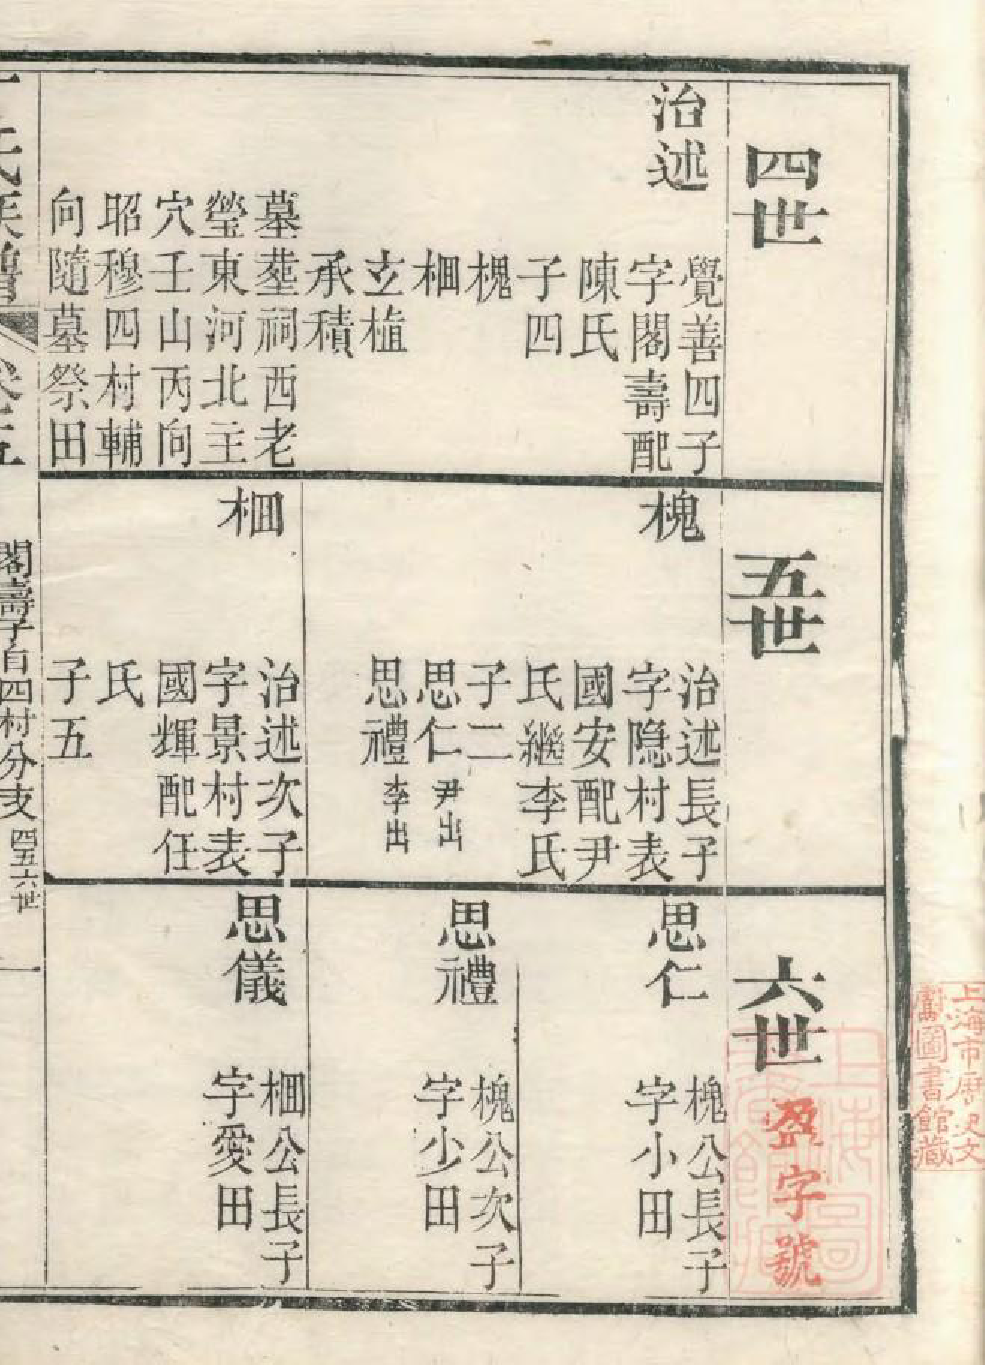 四世
治述
覺善四子
字閣壽配
陳氏
子四
槐
棞
立植
承積
墓塟祠西老
瑩東河北主
穴壬山丙向
昭穆四村輔
向隨墓祭田
五世
槐
治述長子
字隐村表
國安配尹
氏繼李氏
子二
思仁尹出
思禮李出
棞
治述次子
字景村表
國輝配任
氏
子五
六世
盈字號
思仁
槐公長子
字小田
思禮
槐公次子
字少田
思儀
棞公長子
字愛田
氏族譜
卷五
閣壽子自四村分支 四五六世
一
上海市历史文
献圖書館藏